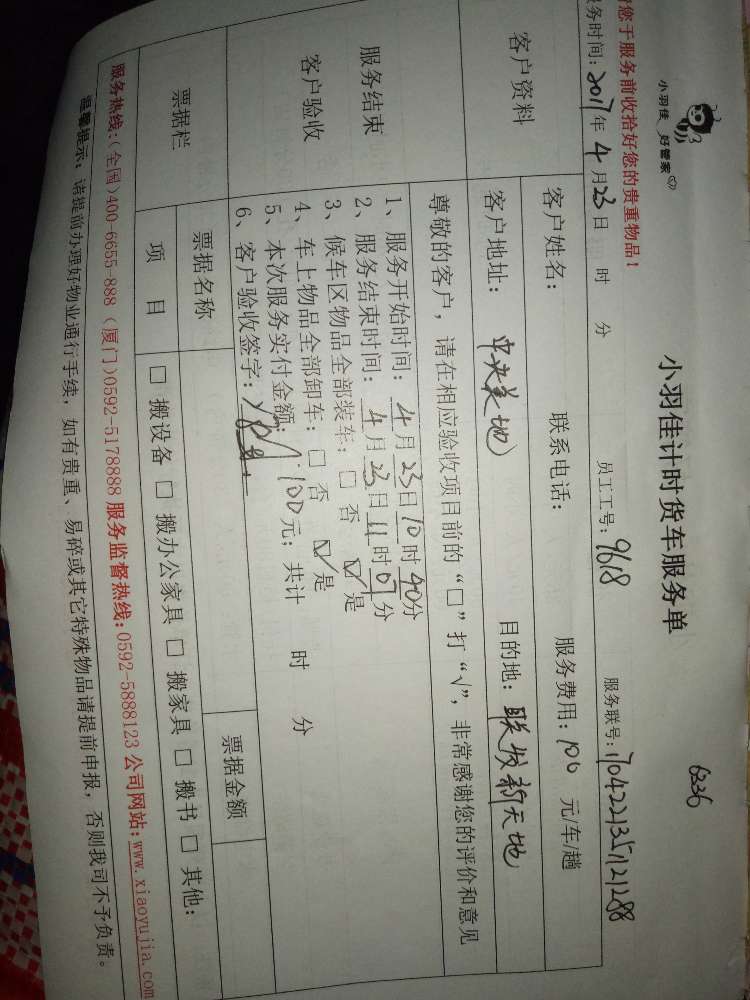 6236
小羽佳 好管家
小羽佳计时货车服务单
您于服务前收拾好您的贵重物品!
务时间: 2017年 4月23日 时 分 员工工号: 9618 服务联号: 170422135121288
客户资料
客户姓名: 联系电话: 服务费用: 100 元/车/趟
客户地址: 中央美地 目的地: 联发新天地
服务结束
客户验收
尊敬的客户, 请在相应验收项目前的“□”打“√”, 非常感谢您的评价和意见
1、服务开始时间: 4月23日10时40分
2、服务结束时间: 4月23日11时07分
3、候车区物品全部装车: □ 否 ☑ 是
4、车上物品全部卸车: □ 否 ☑ 是
5、本次服务实付金额: 100元; 共计 时 分
6、客户验收签字:
票据栏
票据名称 票据金额
项 目 □ 搬设备 □ 搬办公家具 □ 搬家具 □ 搬书 □ 其他:
服务热线:(全国)400-6655-888 (厦门)0592-5178888 服务监督热线:0592-5888123 公司网站:www.xiaoyujia.com
温馨提示: 请提前办理好物业通行手续, 如有贵重、易碎或其它特殊物品请提前申报, 否则我司不予负责。